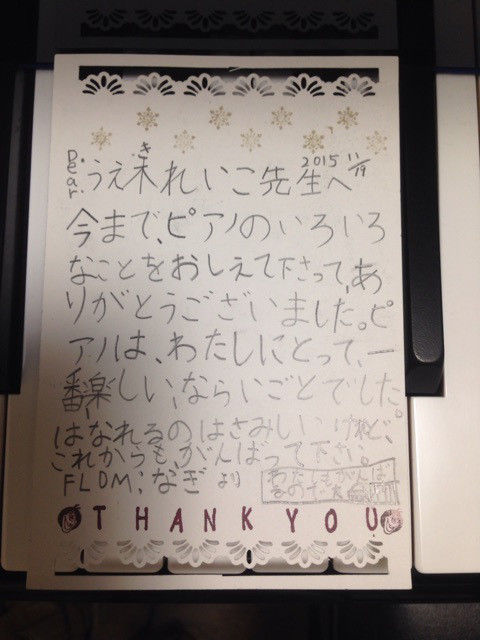 Dear. うえ木れいこ先生へ 2015 11/19
き
今まで、ピアノのいろいろ
なことをおしえて下さって、あ
りがとうございました。ピ
アノは、わたしにとって、一
番、楽しい、ならいごとでした。
はなれるのはさみしいけれど、
これからも、がんばって下さい。
FLDM; なぎより
わたしもがんば
るので
THANK YOU